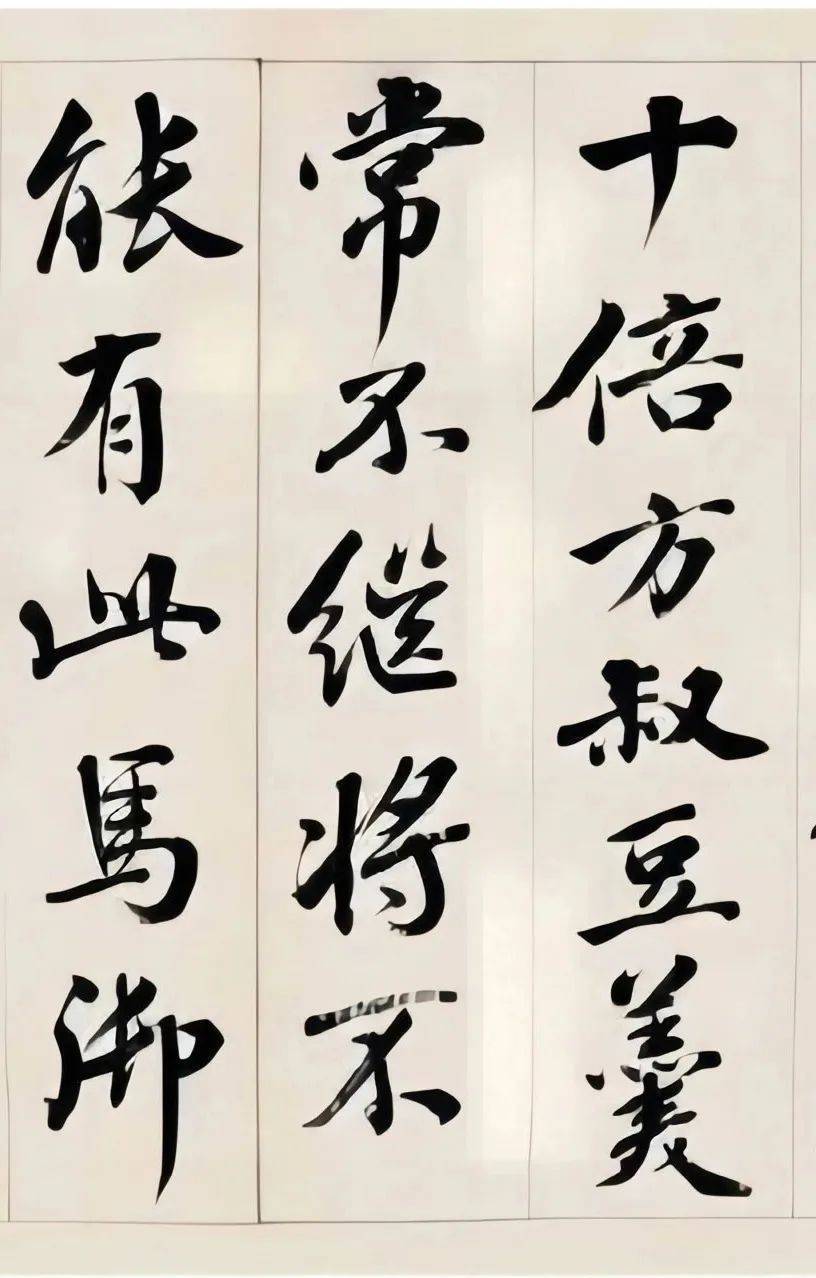 十倍方叔豆羹
常不继将不
能有此馬御